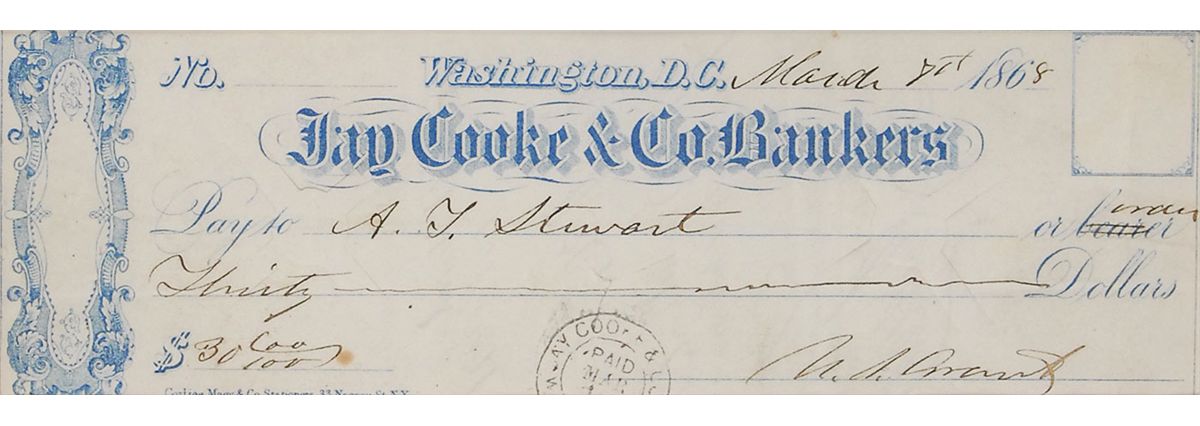 No. Washington, D.C. March 8th 1868
Jay Cooke & Co. Bankers
Pay to A. T. Stewart or bearer order
Thirty Dollars
$ 30 00/100
JAY COOKE & CO
PAID
MAR
U. S. Grant
Stationers, 33 Nassau St. N.Y.